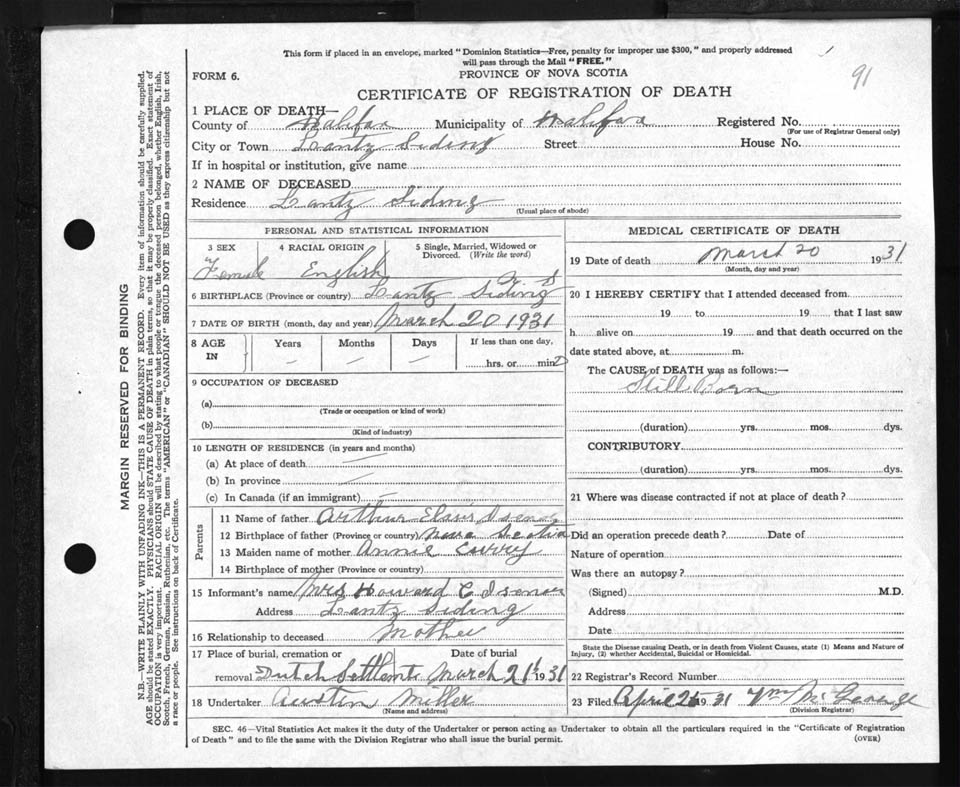 This form if placed in an envelope, marked "Dominion Statistics—Free, penalty for improper use $300," and properly addressed
will pass through the Mail "FREE."
91
FORM 6.
PROVINCE OF NOVA SCOTIA
CERTIFICATE OF REGISTRATION OF DEATH
1 PLACE OF DEATH—
County of Halifax Municipality of Halifax Registered No.
(For use of Registrar General only)
City or Town Lantz Siding Street House No.
If in hospital or institution, give name
2 NAME OF DECEASED
Residence Lantz Siding
(Usual place of abode)
PERSONAL AND STATISTICAL INFORMATION
3 SEX 4 RACIAL ORIGIN 5 Single, Married, Widowed or
Divorced. (Write the word)
Female English
6 BIRTHPLACE (Province or country) Lantz Siding
7 DATE OF BIRTH (month, day and year) March 20 1931
8 AGE IN Years Months Days If less than one day,
— — — hrs. or min
9 OCCUPATION OF DECEASED
(a)
(Trade or occupation or kind of work)
(b)
(Kind of industry)
10 LENGTH OF RESIDENCE (in years and months)
(a) At place of death —
(b) In province —
(c) In Canada (if an immigrant) —
Parents
11 Name of father Arthur Isenor
12 Birthplace of father (Province or country) Nova Scotia
13 Maiden name of mother Annie Curry
14 Birthplace of mother (Province or country)
15 Informant's name Mrs Howard C Isenor
Address Lantz Siding
16 Relationship to deceased Mother
17 Place of burial, cremation or Date of burial
removal Dutch Settlemt March 21 1931
18 Undertaker Austin Miller
(Name and address)
MEDICAL CERTIFICATE OF DEATH
19 Date of death March 20 1931
(Month, day and year)
20 I HEREBY CERTIFY that I attended deceased from
19 to 19 that I last saw
h alive on 19 and that death occurred on the
date stated above, at m.
The CAUSE of DEATH was as follows:—
Still Born
(duration) yrs. mos. dys.
CONTRIBUTORY
(duration) yrs. mos. dys.
21 Where was disease contracted if not at place of death?
Did an operation precede death? Date of
Nature of operation
Was there an autopsy?
(Signed) M.D.
Address
Date
State the Disease causing Death, or in death from Violent Causes, state (1) Means and Nature of
Injury, (2) whether Accidental, Suicidal or Homicidal.
22 Registrar's Record Number
23 Filed April 1931
(Division Registrar)
SEC. 46—Vital Statistics Act makes it the duty of the Undertaker or person acting as Undertaker to obtain all the particulars required in the "Certificate of Registration
of Death" and to file the same with the Division Registrar who shall issue the burial permit.
(OVER)
MARGIN RESERVED FOR BINDING
N.B.—WRITE PLAINLY WITH UNFADING INK—THIS IS A PERMANENT RECORD. Every item of information should be carefully supplied.
AGE should be stated EXACTLY. PHYSICIANS should STATE CAUSE OF DEATH in plain terms, so that it may be properly classified. Exact statement of
OCCUPATION is very important. RACIAL ORIGIN will be described by stating to what people or tongue the deceased person belonged, whether English, Irish,
Scotch, French, German, Russian, Ruthenian, etc. The terms "AMERICAN" or "CANADIAN" SHOULD NOT BE USED as they express citizenship but not
a race or people. See instructions on back of Certificate.